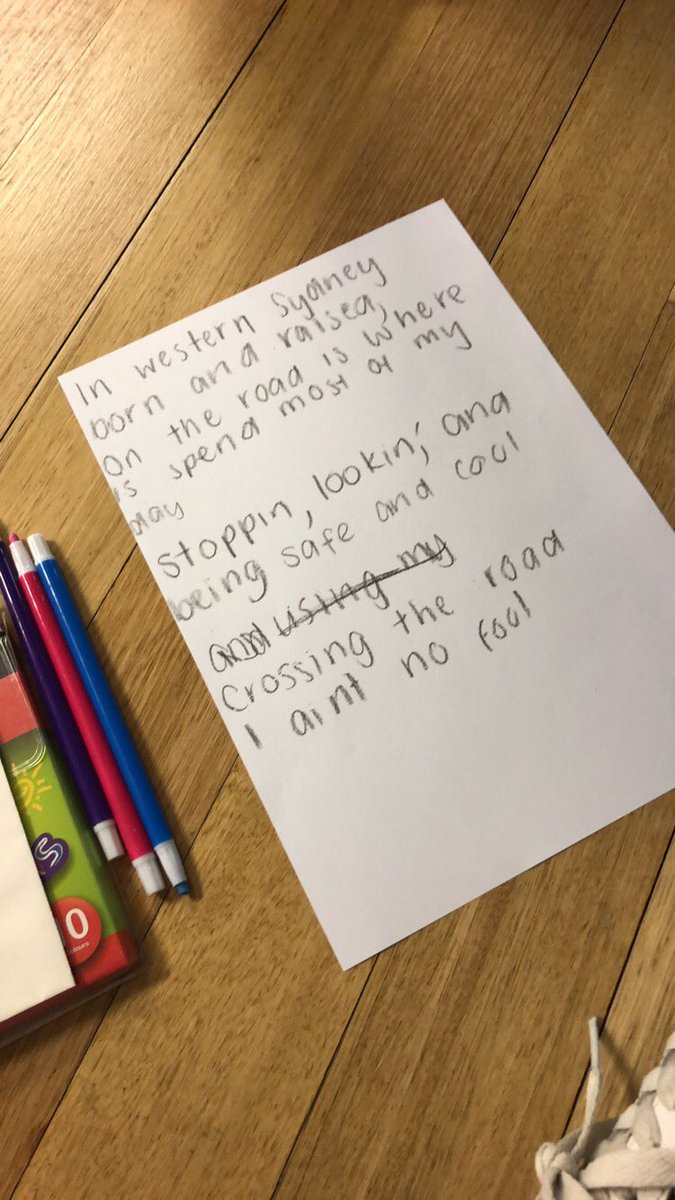 In western Sydney
born and raised,
on the road is where
is spend most of my
day
stoppin, lookin', and
being safe and cool
and using my
crossing the road
I aint no fool
0
colours